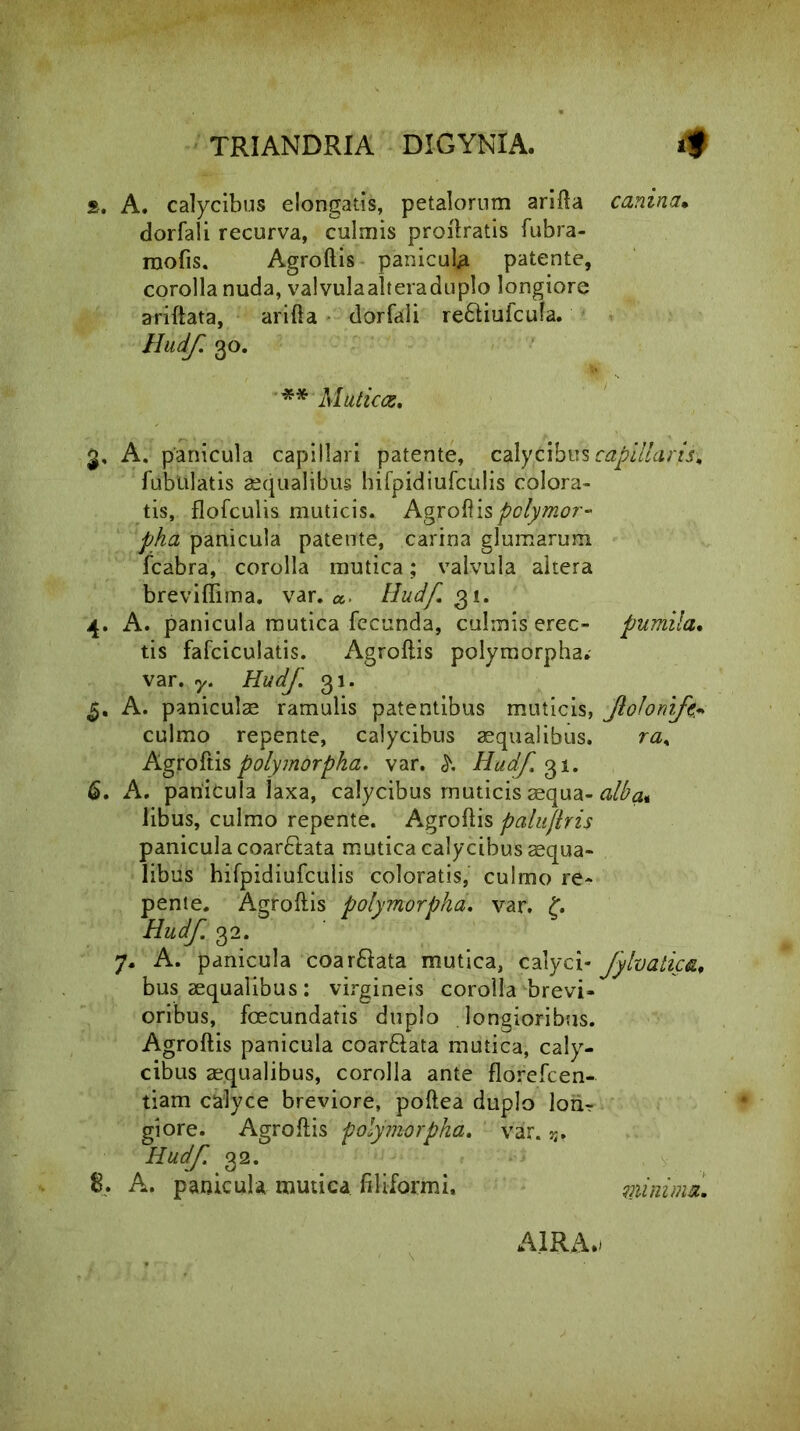 TRIANDRIA DIGYNIA.
2. A. calycibus elongatis, petalorum ariſta canina.
dorſali recurva, culmis proſtratis ſubra-
moſis. Agroſtis panicula patente,
corolla nuda, valvula altera duplo longiore
ariſtata, ariſta dorſali rectiuſcula.
Hudſ. 30.
** Muticæ.
3. A. panicula capillari patente, calycibus capillaris.
ſubulatis æqualibus hiſpidiuſculis colora-
tis, floſculis muticis. Agroſtis polymor-
pha panicula patente, carina glumarum
ſcabra, corolla mutica; valvula altera
breviſſima. var. α. Hudſ. 31.
4. A. panicula mutica ſecunda, culmis erec- pumila.
tis faſciculatis. Agroſtis polymorpha.
var. γ. Hudſ. 31.
5. A. paniculæ ramulis patentibus muticis, ſtolonife-
culmo repente, calycibus æqualibus. ra.
Agroſtis polymorpha. var. δ. Hudſ. 31.
6. A. panicula laxa, calycibus muticis æqua- alba.
libus, culmo repente. Agroſtis paluſtris
panicula coarctata mutica calycibus æqua-
libus hiſpidiuſculis coloratis, culmo re-
pente. Agroſtis polymorpha. var. ζ.
Hudſ. 32.
7. A. panicula coarctata mutica, calyci- ſylvatica.
bus æqualibus: virgineis corolla brevi-
oribus, fœcundatis duplo longioribus.
Agroſtis panicula coarctata mutica, caly-
cibus æqualibus, corolla ante floreſcen-
tiam calyce breviore, poſtea duplo lon-
giore. Agroſtis polymorpha. var. η.
Hudſ. 32.
8. A. panicula mutica filiformi. minima.
AIRA.